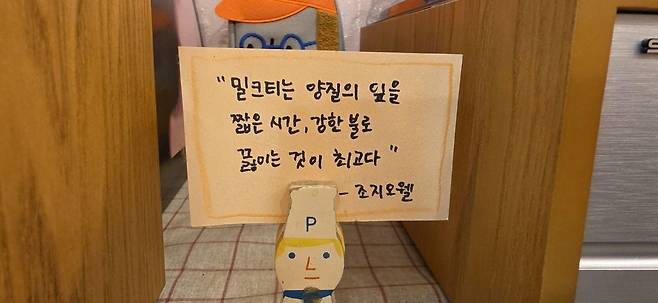 "밀크티는 양질의 잎을
짧은 시간, 강한 불로
끓이는 것이 최고다"
- 조지오웰
P